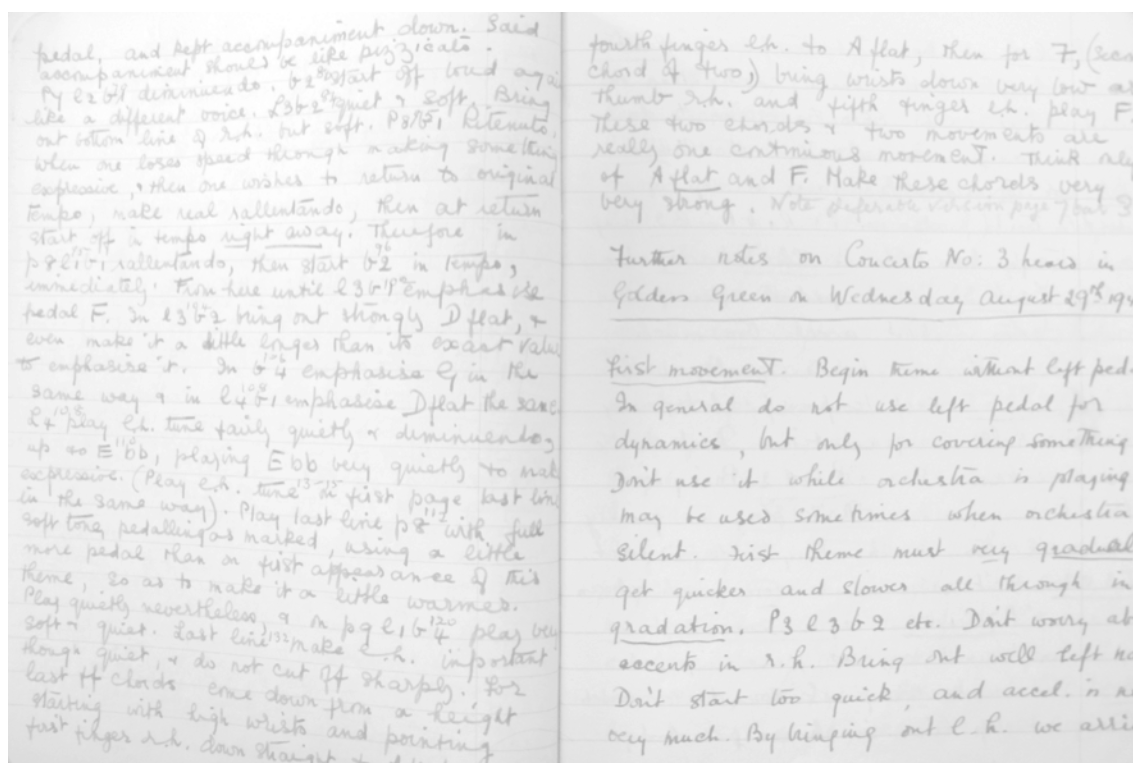 pedal, and kept accompaniment down. Said
accompaniment should be like pizzicato.
P7 l2 b1 diminuendo. b2 80 start off loud again
like a different voice. L3 b2 quiet & soft. Bring
out bottom line of r.h. but soft. P8 b1 Ritenuto.
when one loses speed through making something
expressive, & then one wishes to return to original
tempo, make real rallentando, then at return
start off in tempo right away. Therefore in
p8 l1 b1 95 rallentando, then start b2 96 in tempo,
immediately. From here until l3 b1 emphasise
pedal F. In l3 b2 bring out strongly D flat, &
even make it a little longer than its exact value
to emphasise it. In b4 106 emphasise G in the
same way & in l4 b1 108 emphasise D flat the same.
L4 108 play l.h. tune fairly quietly & diminuendo,
up to E 110 bb, playing E bb very quietly to make
expressive. (Play l.h. tune 13-15 on first page last line
in the same way). Play last line p8 112 with full
soft tone, pedalling as marked, using a little
more pedal than on first appearance of this
theme, so as to make it a little warmer.
Play quietly nevertheless, & in p9 l1 b4 120 play very
soft & quiet. Last line 132 make l.h. important
though quiet, & do not cut off sharply. For
last ff chords come down from a height
starting with high wrists and pointing
first fingers r.h. down straight
fourth fingers l.h. to A flat, then for 7, (secon
chord of two,) bring wrists down very low as
thumb r.h. and fifth fingers l.h. play F.
These two chords & two movements are
really one continuous movement. Think only
of A flat and F. Make these chords very
very strong. Note preferable version page 7 bar 3
Further notes on Concerto No: 3 heard in
Golders Green on Wednesday August 29th 194
First movement. Begin theme without left peda
In general do not use left pedal for
dynamics, but only for covering something
Don't use it while orchestra is playing
may be used sometimes when orchestra
silent. First theme must very gradual
get quicker and slower all through in
gradation. P3 l3 b2 etc. Don't worry ab
accents in r.h. Bring out well left
Don't start too quick, and accel. is
very much. By bringing out l.h. we arri